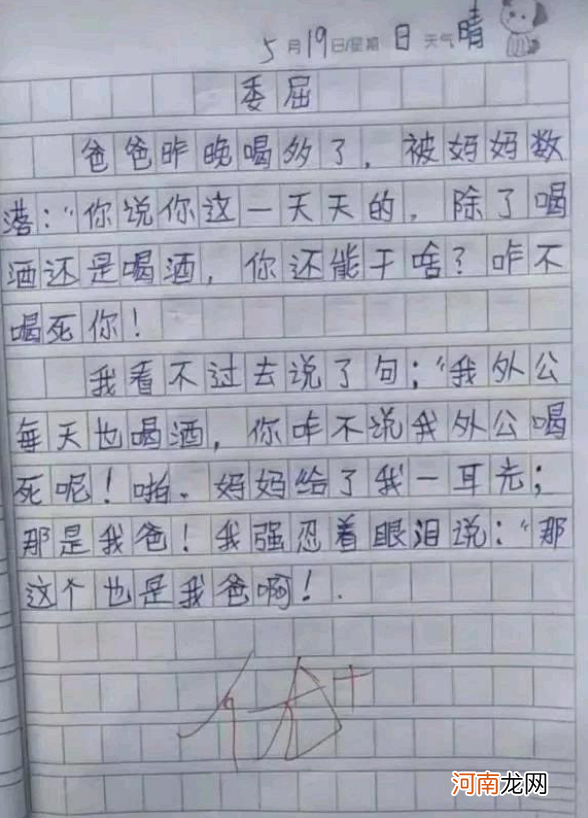 5月19日/星期日 天气晴
委屈
爸爸昨晚喝多了，被妈妈数
落："你说你这一天天的，除了喝
酒还是喝酒，你还能干啥？咋不
喝死你！
我看不过去说了句："我外公
每天也喝酒，你咋不说我外公喝
死呢！啪．妈妈给了我一耳光；
那是我爸！我强忍着眼泪说："那
这个也是我爸啊！．
河南龙网